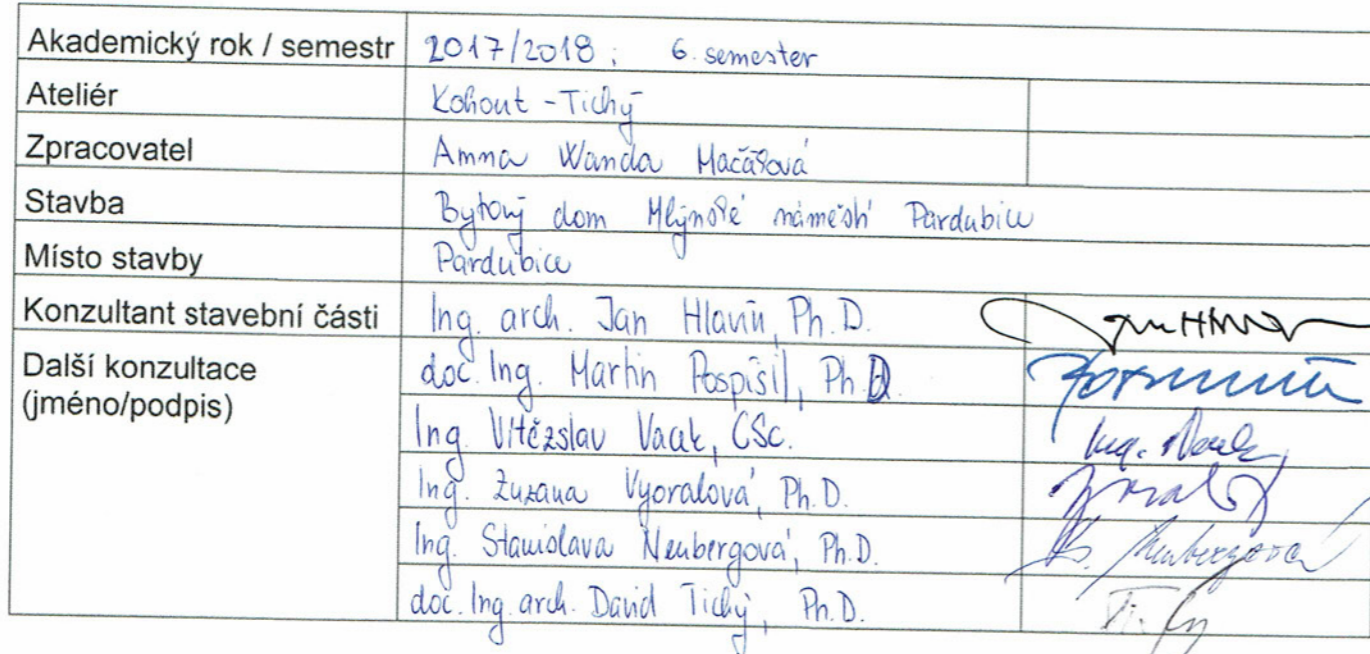 Akademický rok / semestr 2017/2018; 6. semester
Ateliér Kohout - Tichý
Zpracovatel Anna Wanda Macášová
Stavba Bytový dom Mlýnské náměstí Pardubice
Místo stavby Pardubice
Konzultant stavební části Ing. arch. Jan Hlavín, Ph.D.
Další konzultace doc. Ing. Martin Pospíšil, Ph.D.
(jméno/podpis)
Ing. Vítězslav Vacek, CSc. Ing.
Ing. Zuzana Vyoralová, Ph.D.
Ing. Stanislava Neubergová, Ph.D. Neubergová
doc. Ing. arch. David Tichý, Ph.D. Tichý